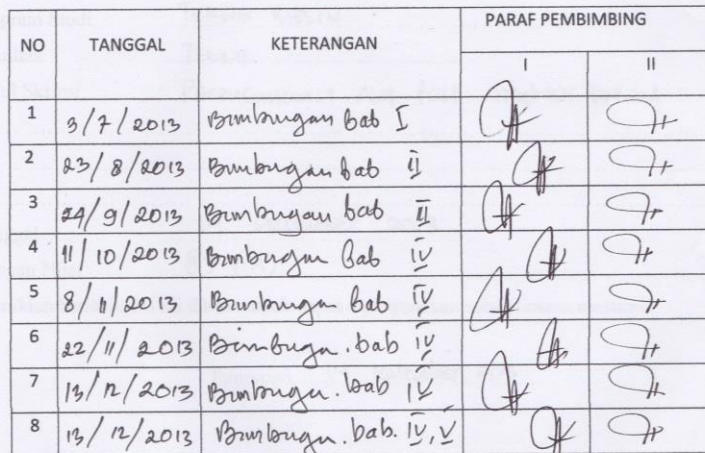 NO TANGGAL KETERANGAN PARAF PEMBIMBING
I II
1 3/7/2013 Bimbingan bab I
2 23/8/2013 Bimbingan bab II
3 24/9/2013 Bimbingan bab II
4 11/10/2013 Bimbingan bab IV
5 8/11/2013 Bimbingan bab IV
6 22/11/2013 Bimbingan. bab IV
7 13/12/2013 Bimbingan. bab IV
8 13/12/2013 Bimbingan. bab. IV, V